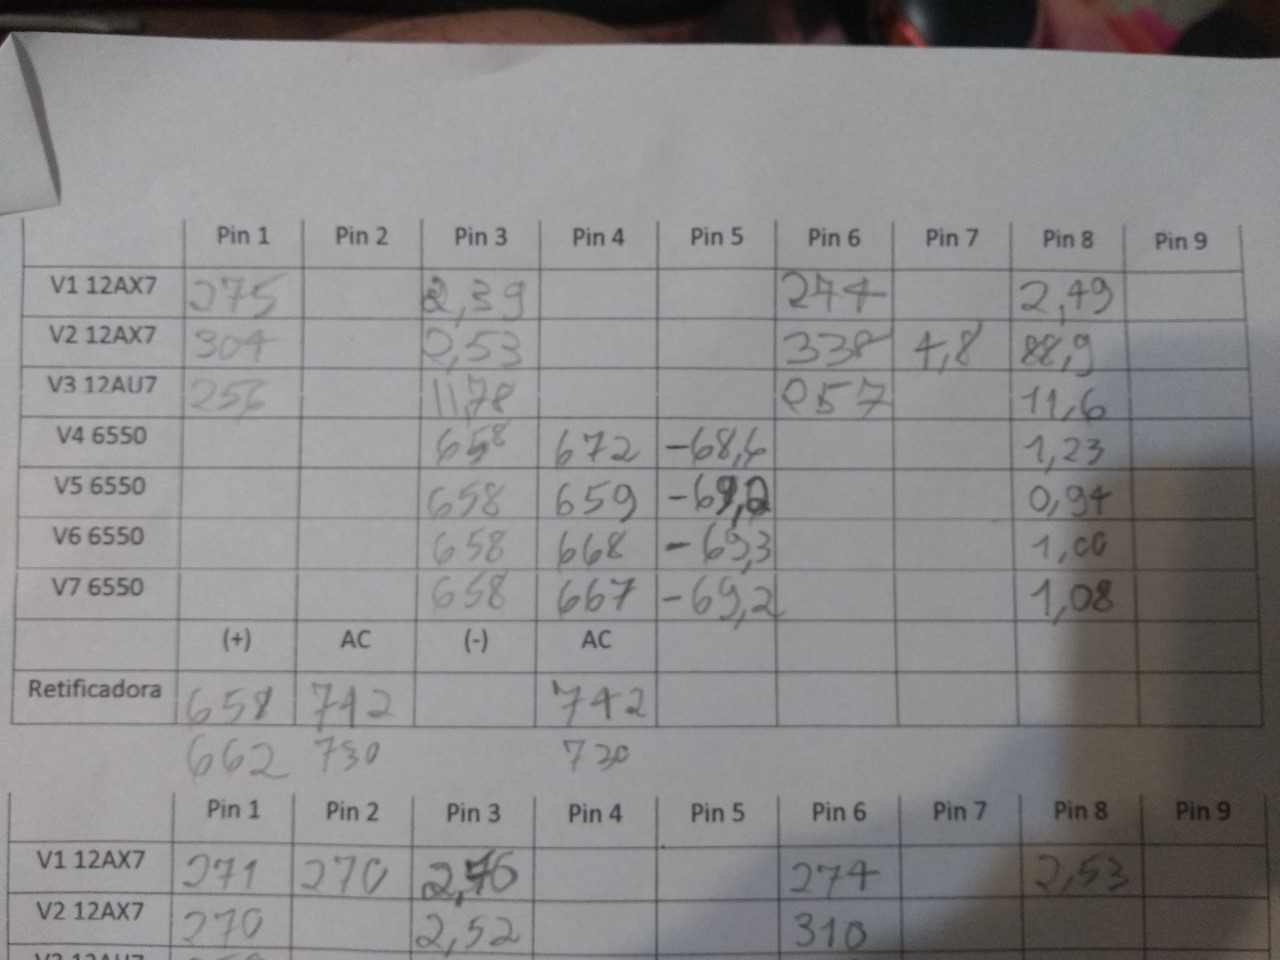 Pin 1 Pin 2 Pin 3 Pin 4 Pin 5 Pin 6 Pin 7 Pin 8 Pin 9
V1 12AX7 275 2,39 274 2,49
V2 12AX7 304 2,53 338 4,8 88,9
V3 12AU7 256 11,78 257 11,6
V4 6550 658 672 -68,6 1,23
V5 6550 658 659 -69,2 0,94
V6 6550 658 668 -69,3 1,00
V7 6550 658 667 -69,2 1,08
(+) AC (-) AC
Retificadora 658 742 742
662 730 730
Pin 1 Pin 2 Pin 3 Pin 4 Pin 5 Pin 6 Pin 7 Pin 8 Pin 9
V1 12AX7 271 270 274 2,53
V2 12AX7 270 2,52 310
V3 12AU7